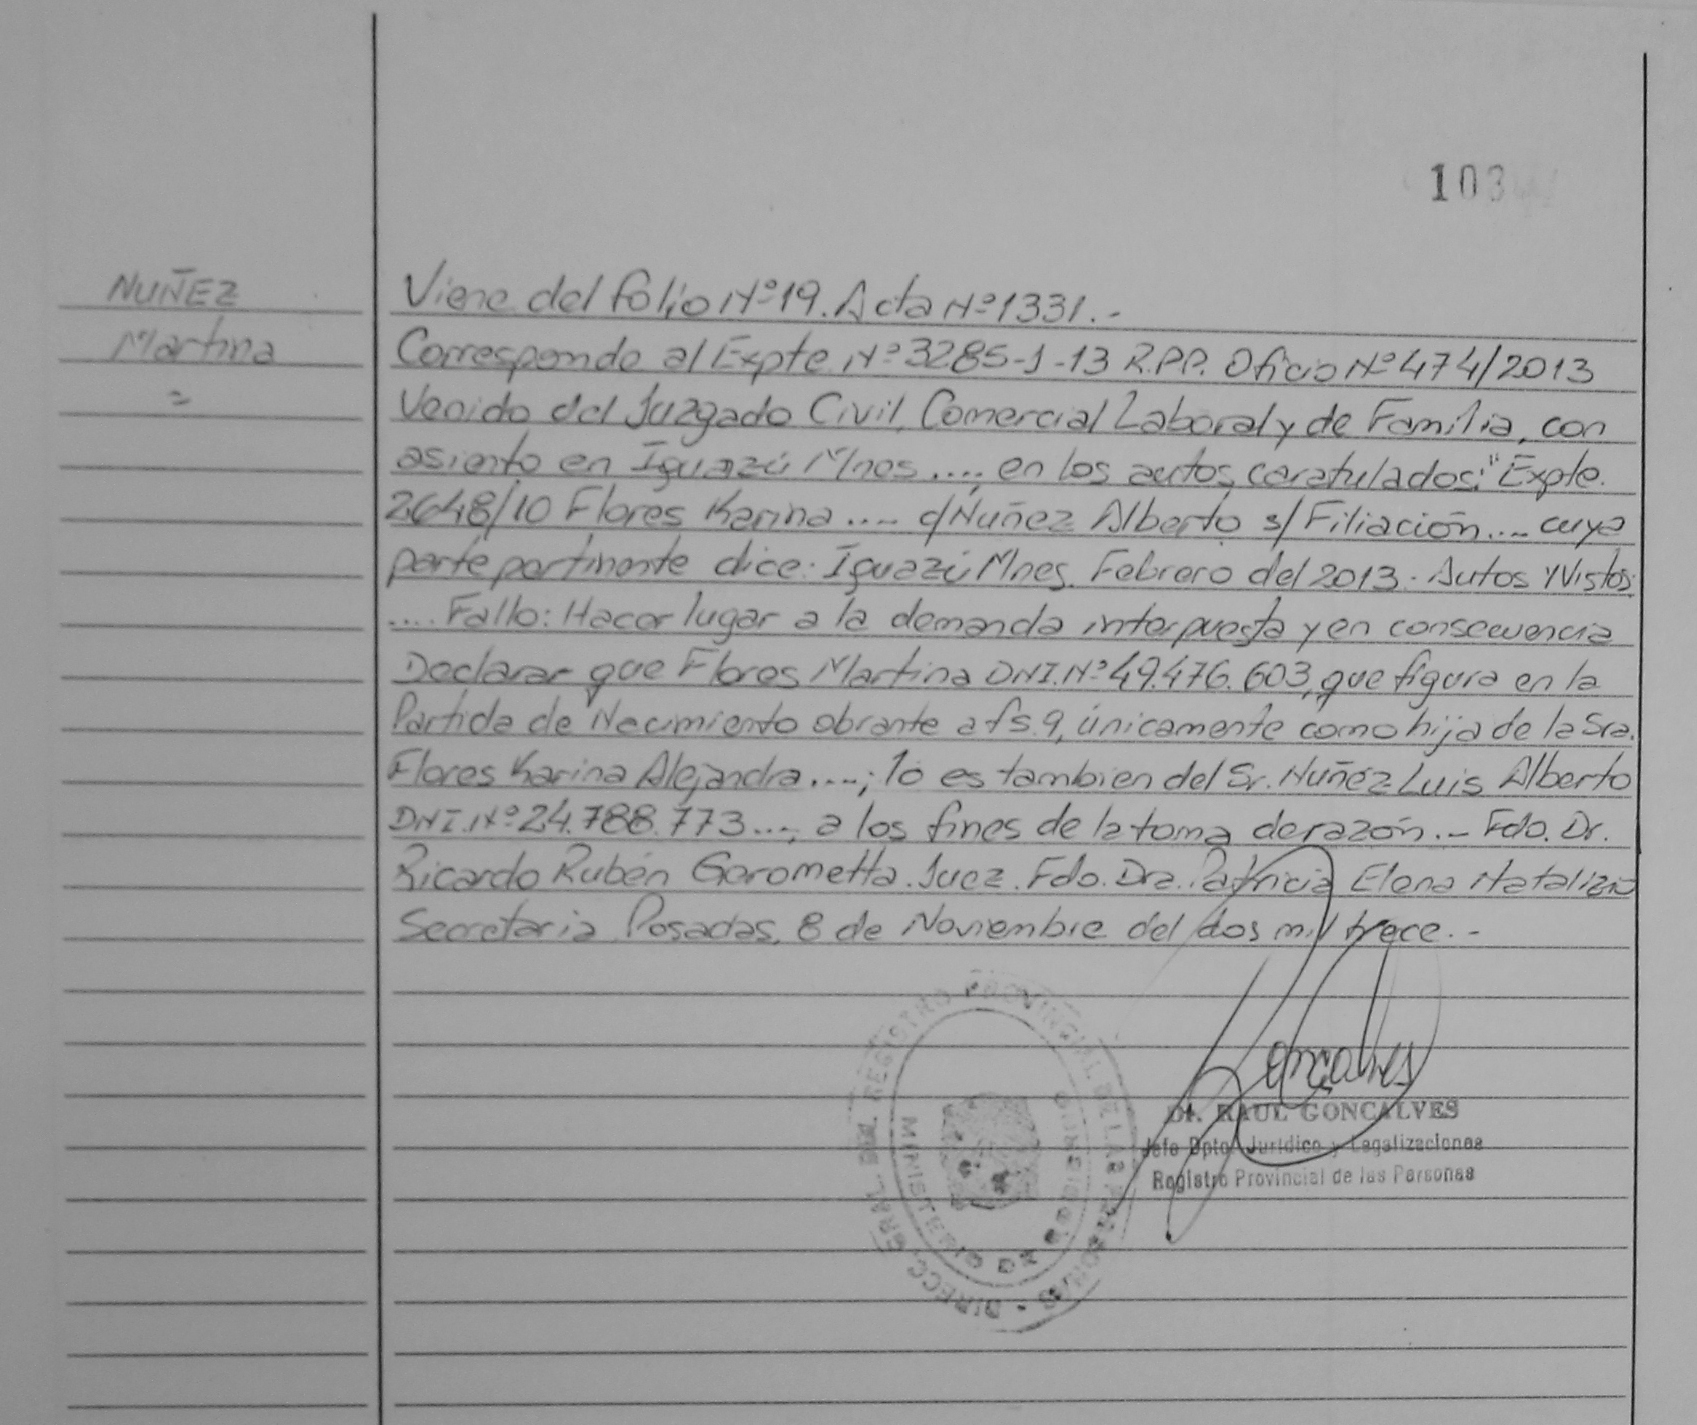 103
NUÑEZ
Martina
=
Viene del folio Nº19. Acta Nº1331.-
Corresponde al Expte Nº3285-J-13 R.P.P. Oficio Nº474/2013
Venido del Juzgado Civil, Comercial Laboral y de Familia, con
asiento en Iguazú Mnes ...., en los autos caratulados: "Expte.
2648/10 Flores Karina .... c/Nuñez Alberto s/Filiación .... cuya
parte pertinente dice: Iguazú Mnes, Febrero del 2013. Autos Y Vistos:
.... Fallo: Hacer lugar a la demanda interpuesta y en consecuencia
Declarar que Flores Martina DNI.Nº49.476.603, que figura en la
Partida de Nacimiento obrante a fs.9, únicamente como hija de la Sra.
Flores Karina Alejandra ....; lo es tambien del Sr. Nuñez Luis Alberto
DNI.Nº24.788.773...., a los fines de la toma de razón.- Fdo. Dr.
Ricardo Rubén Gerometta. Juez. Fdo. Dra. Patricia Elena Natalizio
Secretaria Posadas, 8 de Noviembre del dos mil trece.-
DIRECC. GRAL. DEL REGISTRO PROVINCIAL DE LAS PERSONAS -
MINISTERIO DE GOBIERNO
Gonçalves
Dr. RAUL GONCALVES
Jefe Dpto. Jurídico y Legalizaciones
Registro Provincial de las Personas